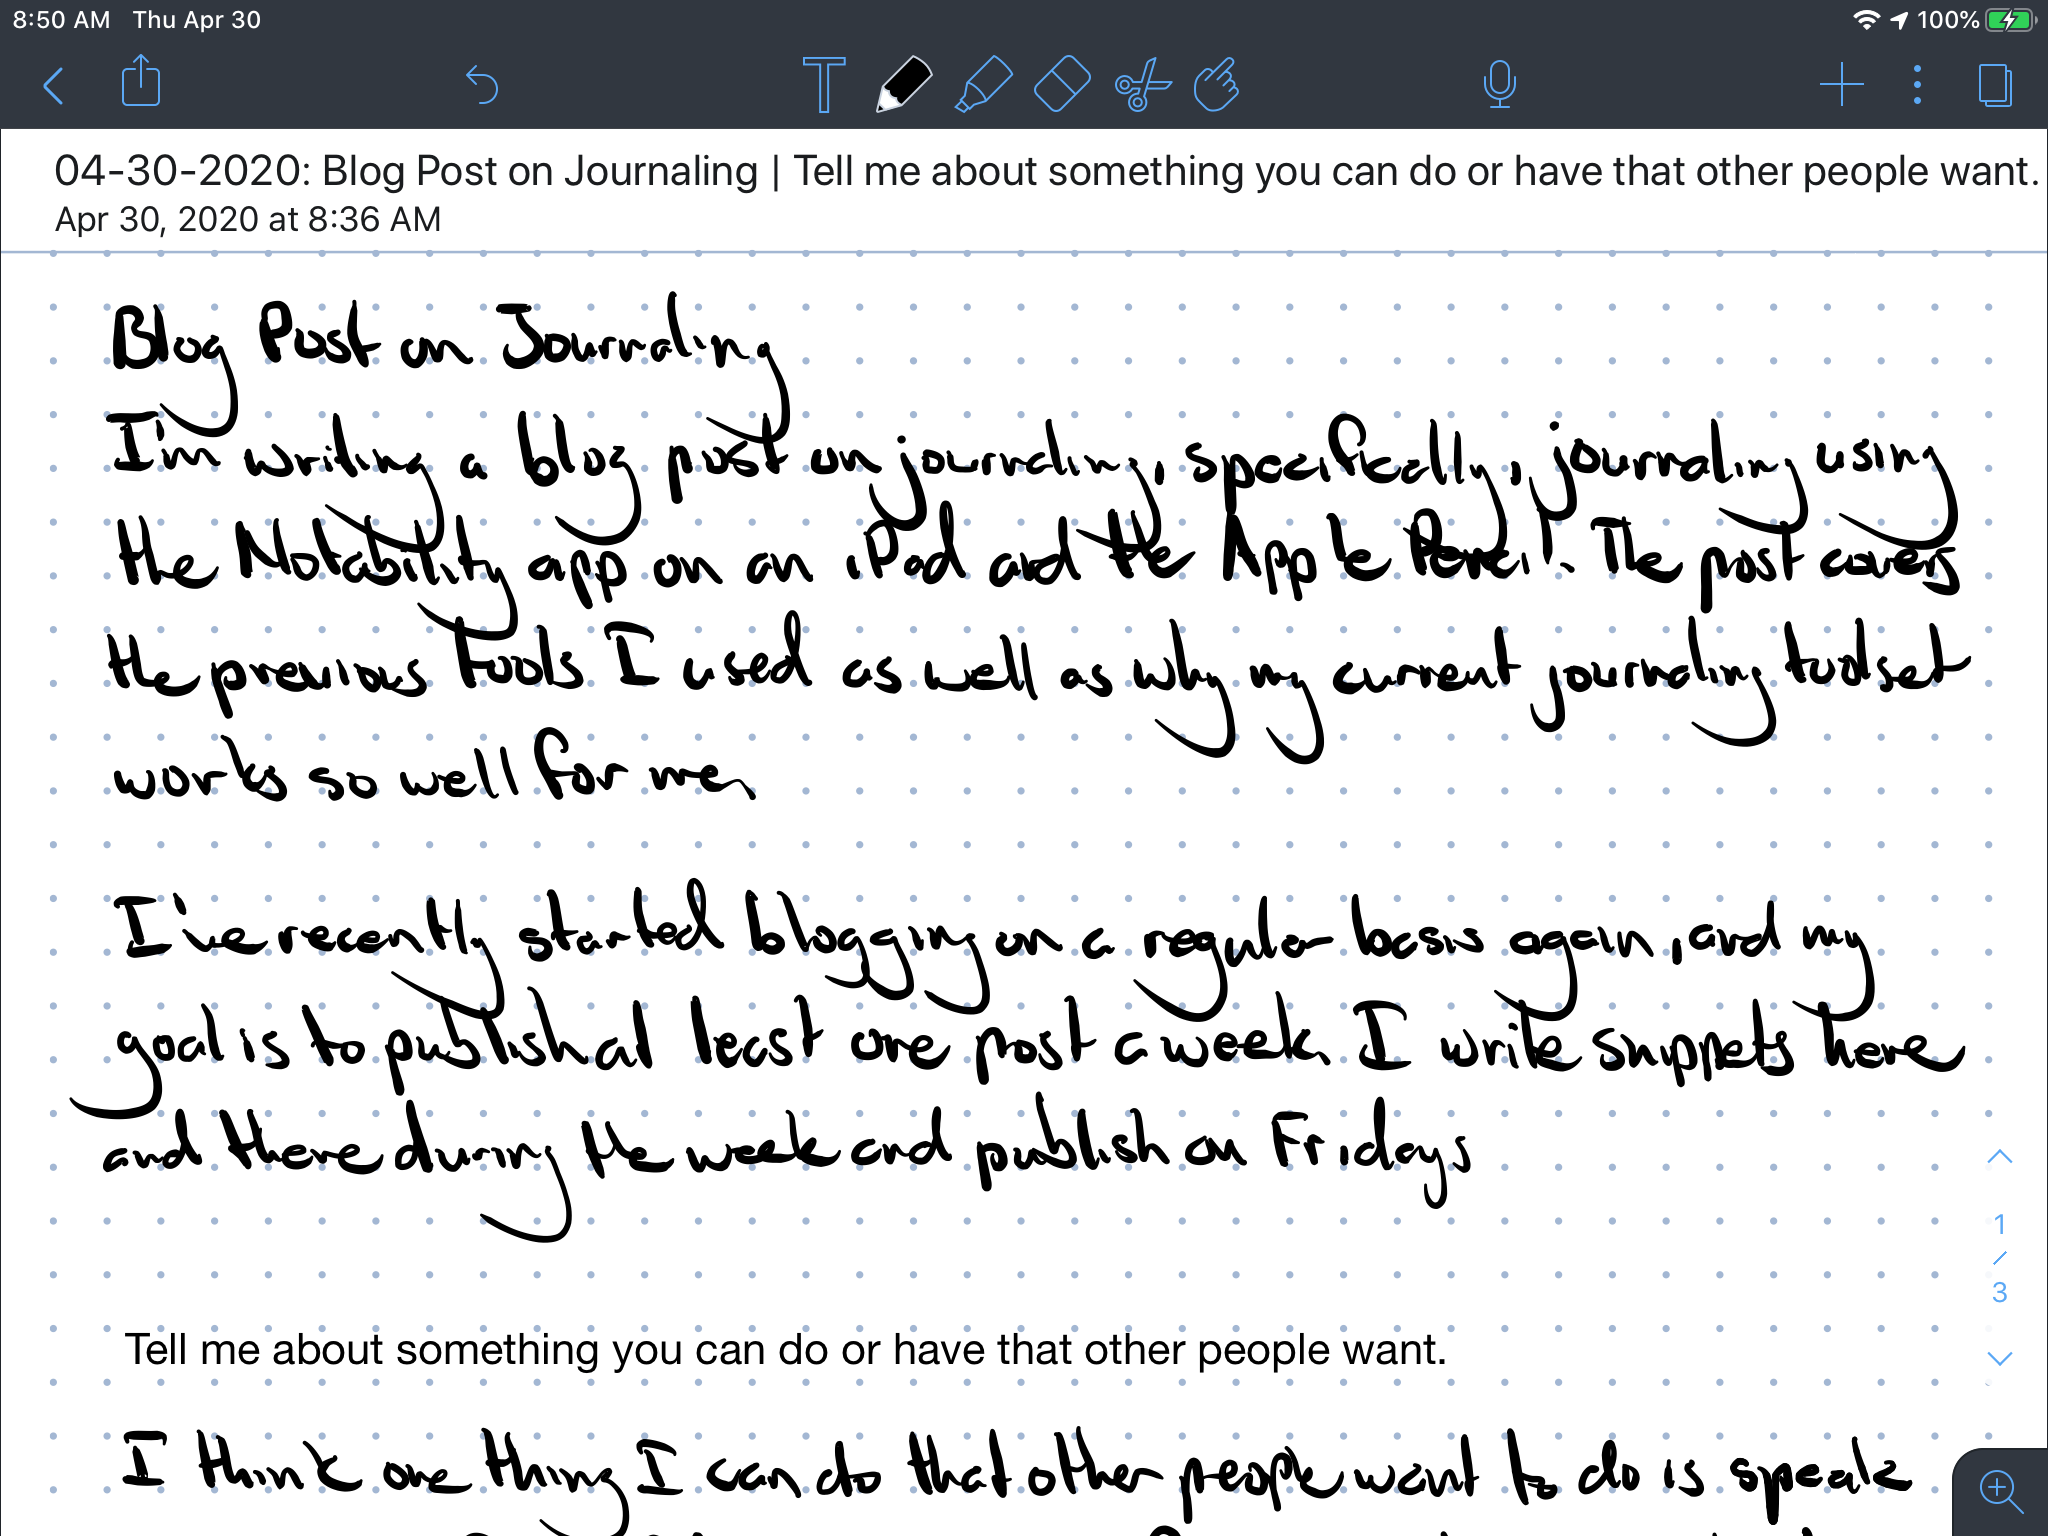 8:50 AM Thu Apr 30 100%
04-30-2020: Blog Post on Journaling | Tell me about something you can do or have that other people want.
Apr 30, 2020 at 8:36 AM
Blog Post on Journaling
I'm writing a blog post on journaling, specifically, journaling using
the Notability app on an iPad and the Apple Pencil. The post covers
the previous tools I used as well as why my current journaling toolset
works so well for me.
I've recently started blogging on a regular basis again, and my
goal is to publish at least one post a week. I write snippets here
and there during the week and publish on Fridays
1
/
3
Tell me about something you can do or have that other people want.
I think one thing I can do that other people want to do is speak